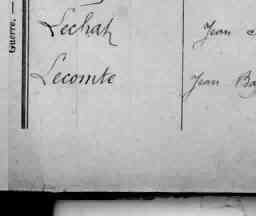 Guerre. —
Lechat Jean
Lecomte Jean Ba